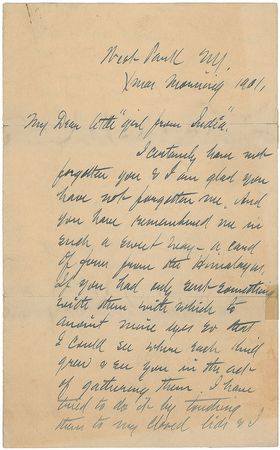 West Park N.Y.
Xmas Morning 1901,
My Dear little "girl from India".
I certainly have not
forgotten you & I am glad you
have not forgotten me. And
you have remembered me in
such a sweet way – a card
of ferns from the Himalayas.
If you had only sent something
with them with which to
anoint mine eyes so that
I could see where each kind
grew & see you in the act
of gathering them. I have
tried to do it by touching
them to my closed lids & I